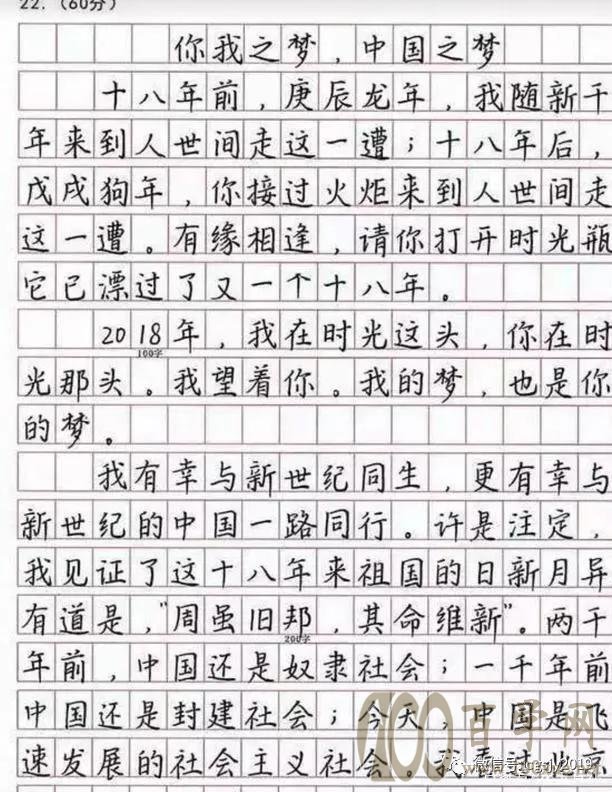 22. (60分)
你我之梦，中国之梦
十八年前，庚辰龙年，我随新千
年来到人世间走这一遭；十八年后，
戊戌狗年，你接过火炬来到人世间走
这一遭。有缘相逢，请你打开时光瓶
它已漂过了又一个十八年。
2018年，我在时光这头，你在时
100字
光那头。我望着你。我的梦，也是你
的梦。
我有幸与新世纪同生，更有幸与
新世纪的中国一路同行。许是注定，
我见证了这十八年来祖国的日新月异
有道是，"周虽旧邦，其命维新"。两千
200字
年前，中国还是奴隶社会；一千年前
中国还是封建社会；今天，中国是飞
速发展的社会主义社会。我看过北京
100百学网